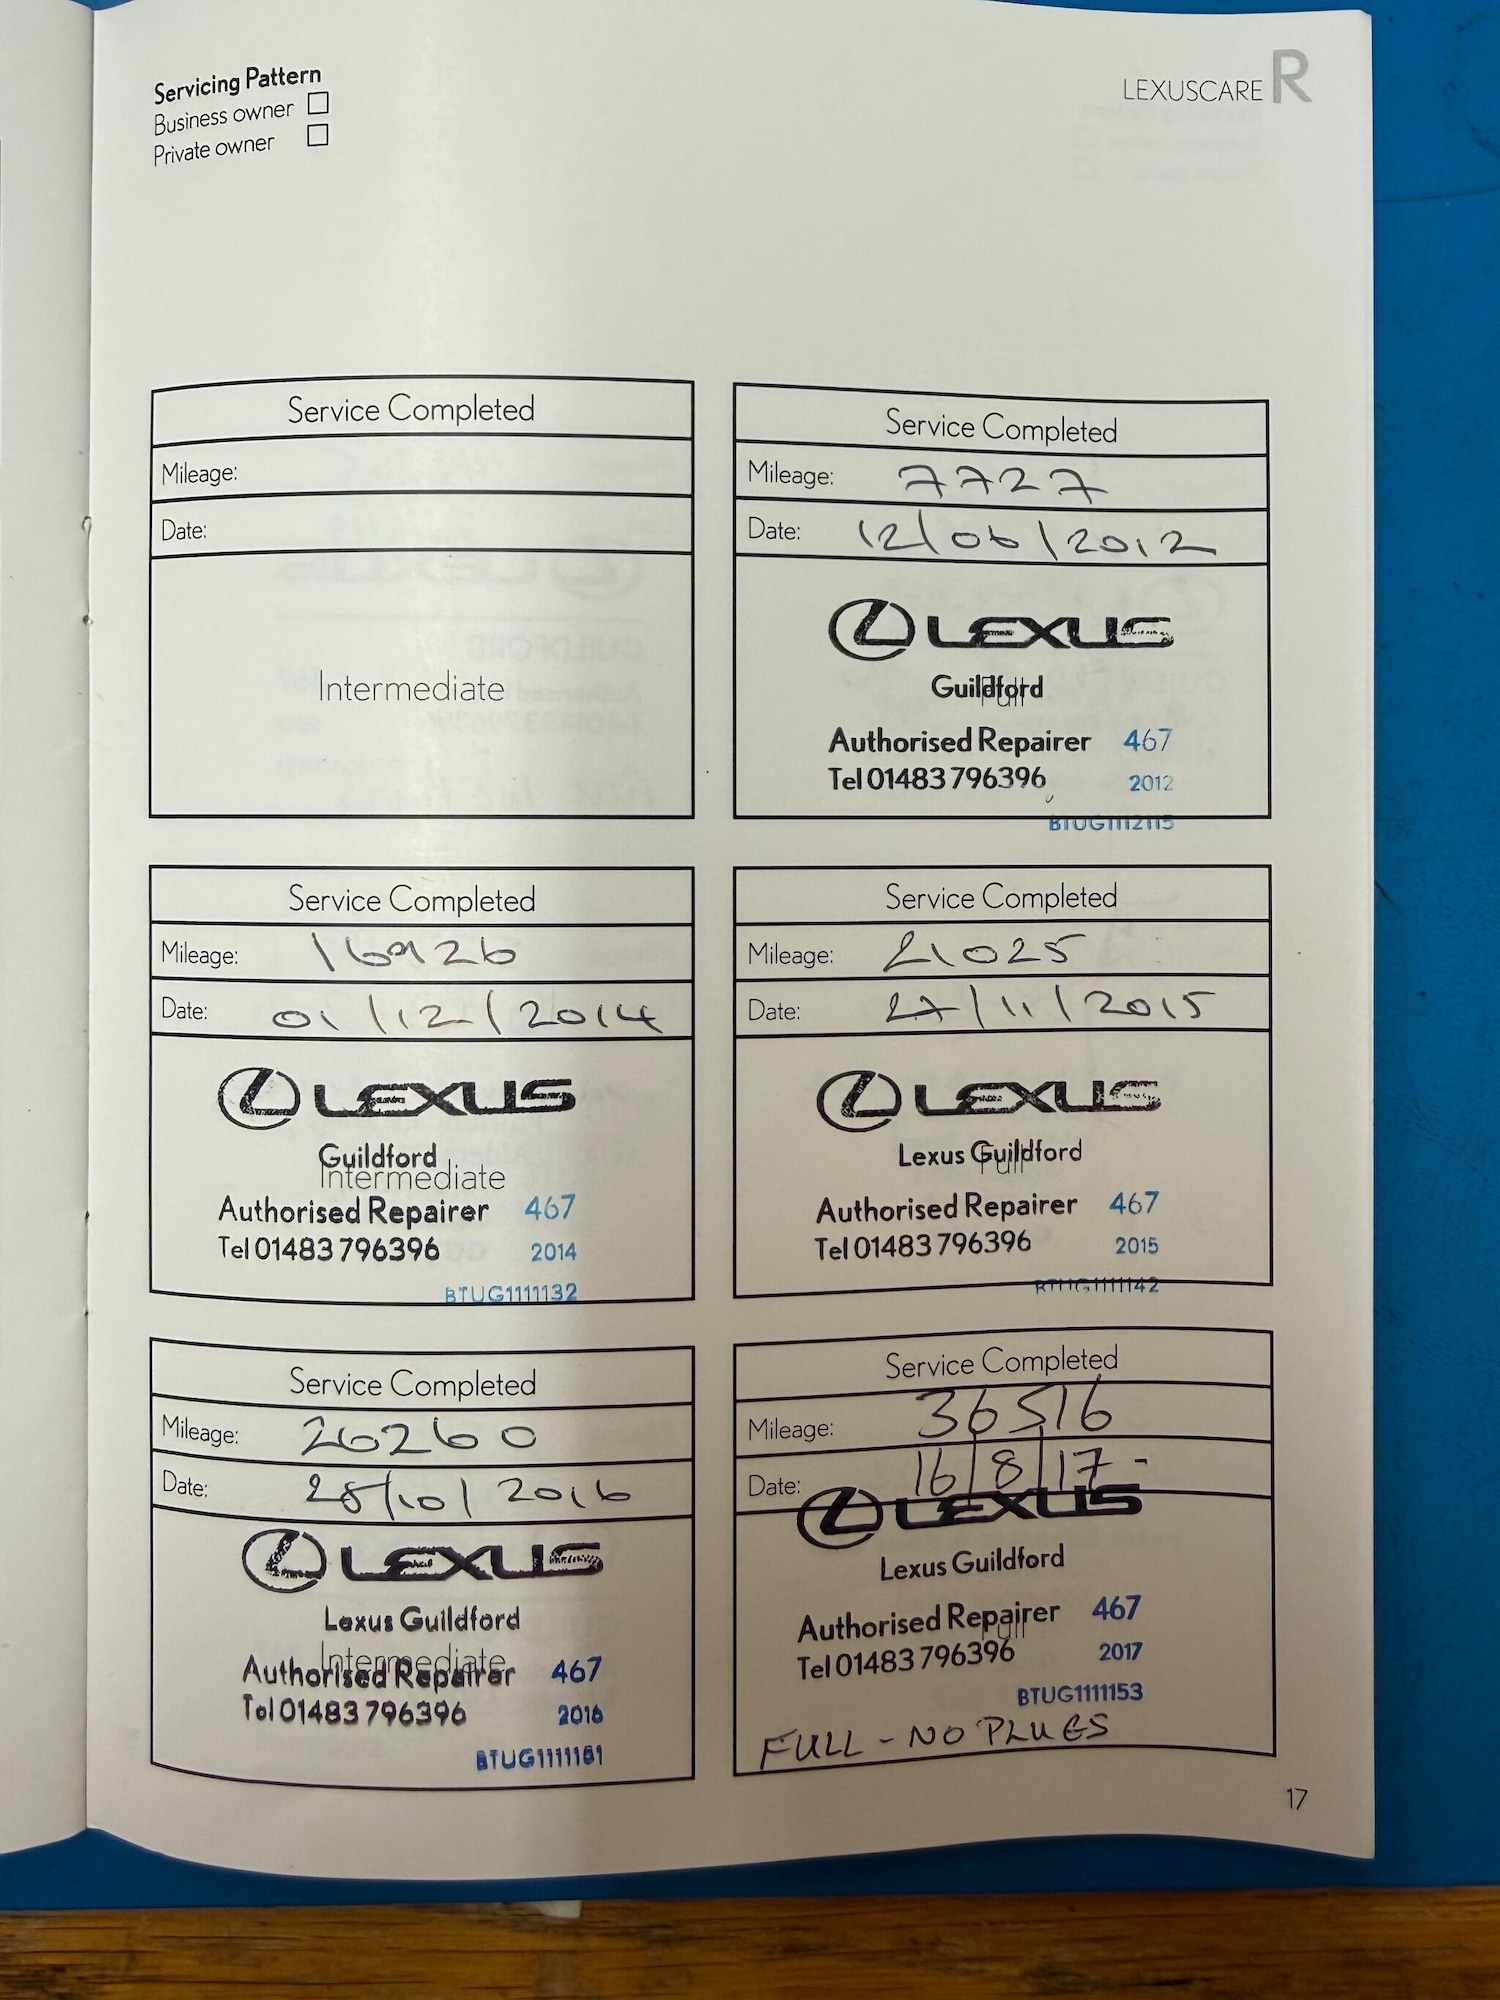 Servicing Pattern
Business owner
Private owner
LEXUSCARE R
Service Completed
Mileage:
Date:
Intermediate
Service Completed
Mileage: 7727
Date: 12/06/2012
LEXUS
Guildford
Full
Authorised Repairer 467
Tel 01483 796396 2012
BTUG1112115
Service Completed
Mileage: 16926
Date: 01/12/2014
LEXUS
Guildford
Intermediate
Authorised Repairer 467
Tel 01483 796396 2014
BTUG1111132
Service Completed
Mileage: 21025
Date: 27/11/2015
LEXUS
Lexus Guildford
Full
Authorised Repairer 467
Tel 01483 796396 2015
BTUG1111142
Service Completed
Mileage: 26260
Date: 28/10/2016
LEXUS
Lexus Guildford
Intermediate
Authorised Repairer 467
Tel 01483 796396 2016
Service Completed
Mileage: 36516
Date: 16/8/17-
LEXUS
Lexus Guildford
Authorised Repairer 467
Full
Tel 01483 796396 2017
BTUG1111153
FULL - NO PLUGS
17